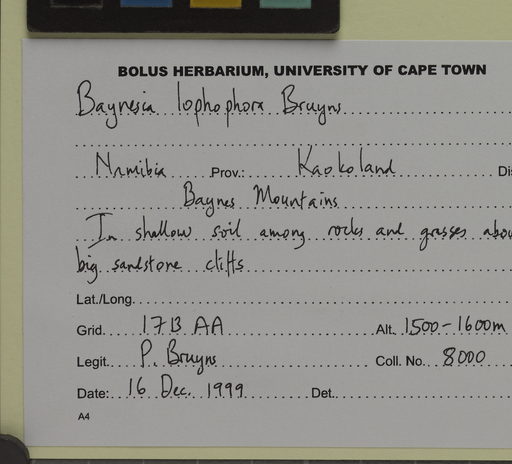 BOLUS HERBARIUM, UNIVERSITY OF CAPE TOWN
Baynesia lophophora Bruyns
Namibia Prov.: Kaokoland
Baynes Mountains
In shallow soil among rocks and grasses
big sandstone cliffs
Lat./Long.
Grid. 1713 AA Alt. 1500-1600m
Legit. P. Bruyns Coll. No. 8000
Date: 16 Dec. 1999 Det.
A4